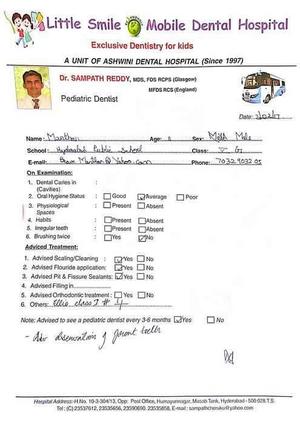 Little Smile Mobile Dental Hospital
Exclusive Dentistry for kids
A UNIT OF ASHWINI DENTAL HOSPITAL (Since 1997)
Dr. SAMPATH REDDY, MDS, FDS RCPS (Glasgow)
MFDS RCS (England)
Pediatric Dentist
Date:
Name: Manthan Age: Sex: Male
School: Hyderabad Public School Class: V G
E-mail: Phone:
On Examination:
1. Dental Caries in (Cavities)
2. Oral Hygiene Status : Good Average Poor
3. Physiological Spaces : Present Absent
4. Habits : Present Absent
5. Irregular teeth : Present Absent
6. Brushing twice : Yes No
Adviced Treatment:
1. Advised Scaling/Cleaning : Yes No
2. Advised Flouride application: Yes No
3. Advised Pit & Fissure Sealants: Yes No
4. Advised Filling in
5. Advised Orthodontic treatment : Yes No
6. Others: Ellis class I #
Note: Advised to see a pediatric dentist every 3-6 months Yes No
- Adv of teeth
Hospital Address: H-No. 10-3-304/13, Opp: Post Office, Humayunnagar, Masab Tank, Hyderabad - 500 028 T.S.
Tel: (C) 23537612, 23535656, 23590690, 23535858, E-mail : sampathcheruku@yahoo.com